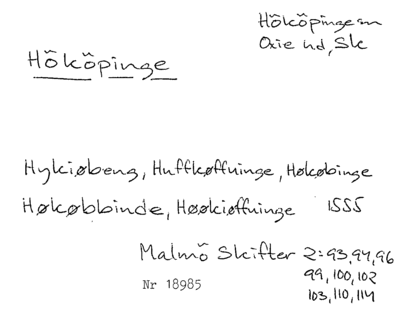 Hököpinge sn
Oxie hd, Sk
Hököpinge
Hykiøbeng, Huffkøffuinge, Høkøbinge
Høkøbbinde, Høøkiøffuinge 1555
Malmö Skifter 2:93,94,96
99,100,102
103,110,114
Nr 18985